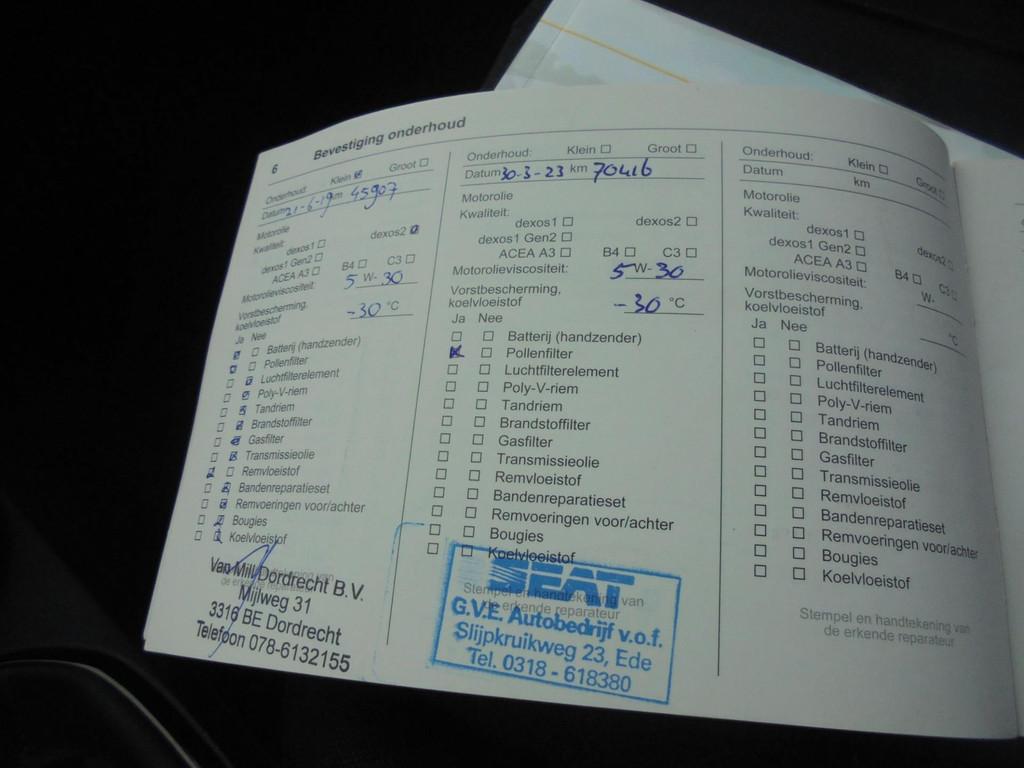 6 Bevestiging onderhoud
Onderhoud: Klein ☒ Groot ☐
Datum 21-6-19 km 45907
Motorolie
Kwaliteit:
dexos1 ☐ dexos2 ☒
dexos1 Gen2 ☐
ACEA A3 ☐ B4 ☐ C3 ☐
Motorolieviscositeit: 5 W- 30
Vorstbescherming,
koelvloeistof -30 °C
Ja Nee
☒ ☐ Batterij (handzender)
☒ ☐ Pollenfilter
☐ ☒ Luchtfilterelement
☐ ☒ Poly-V-riem
☐ ☒ Tandriem
☐ ☒ Brandstoffilter
☐ ☒ Gasfilter
☐ ☒ Transmissieolie
☒ ☐ Remvloeistof
☐ ☒ Bandenreparatieset
☐ ☒ Remvoeringen voor/achter
☐ ☒ Bougies
☐ ☒ Koelvloeistof
Van Mill Dordrecht B.V.
Mijlweg 31
3316 BE Dordrecht
Telefoon 078-6132155
Onderhoud: Klein ☐ Groot ☐
Datum 30-3-23 km 70416
Motorolie
Kwaliteit:
dexos1 ☐ dexos2 ☐
dexos1 Gen2 ☐
ACEA A3 ☐ B4 ☐ C3 ☐
Motorolieviscositeit: 5 W- 30
Vorstbescherming,
koelvloeistof -30 °C
Ja Nee
☐ ☐ Batterij (handzender)
☒ ☐ Pollenfilter
☐ ☐ Luchtfilterelement
☐ ☐ Poly-V-riem
☐ ☐ Tandriem
☐ ☐ Brandstoffilter
☐ ☐ Gasfilter
☐ ☐ Transmissieolie
☐ ☐ Remvloeistof
☐ ☐ Bandenreparatieset
☐ ☐ Remvoeringen voor/achter
☐ ☐ Bougies
☐ ☐ Koelvloeistof
Stempel en handtekening van
de erkende reparateur
SEAT
G.V.E. Autobedrijf v.o.f.
Slijpkruikweg 23, Ede
Tel. 0318 - 618380
Onderhoud: Klein ☐ Groot ☐
Datum km
Motorolie
Kwaliteit:
dexos1 ☐ dexos2 ☐
dexos1 Gen2 ☐
ACEA A3 ☐ B4 ☐ C3 ☐
Motorolieviscositeit: W-
Vorstbescherming,
koelvloeistof °C
Ja Nee
☐ ☐ Batterij (handzender)
☐ ☐ Pollenfilter
☐ ☐ Luchtfilterelement
☐ ☐ Poly-V-riem
☐ ☐ Tandriem
☐ ☐ Brandstoffilter
☐ ☐ Gasfilter
☐ ☐ Transmissieolie
☐ ☐ Remvloeistof
☐ ☐ Bandenreparatieset
☐ ☐ Remvoeringen voor/achter
☐ ☐ Bougies
☐ ☐ Koelvloeistof
Stempel en handtekening van
de erkende reparateur